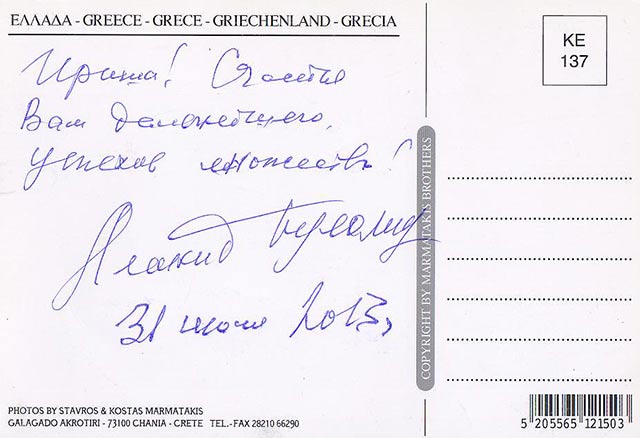 ΕΛΛΑΔΑ - GREECE - GRECE - GRIECHENLAND - GRECIA
KE
137
Ириша! Счастья
Вам дальнейшего,
успехов множество!
31 июля 2013г
COPYRIGHT BY MARMATAKIS BROTHERS
PHOTOS BY STAVROS & KOSTAS MARMATAKIS
GALAGADO AKROTIRI - 73100 CHANIA - CRETE TEL.-FAX 28210 66290
5 205565 121503